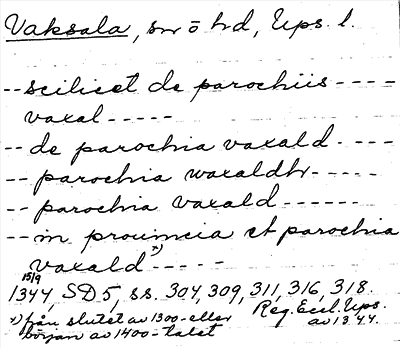 Vaksala, sn o hd, Ups. l.
-- scilicet de parochiis ----
vaxal -----
-- de parochia vaxald ----
-- parochia waxaldhr -----
-- parochia vaxald ------
-- in prouincia et parochia
vaxald x) -----
15/9
1344 SD 5, ss. 304, 309, 311, 316, 318.
x) från slutet av 1300- eller Reg. Eccl. Ups.
början av 1400-talet av 1344.